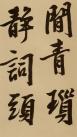 閒青瑣
靜詞頭